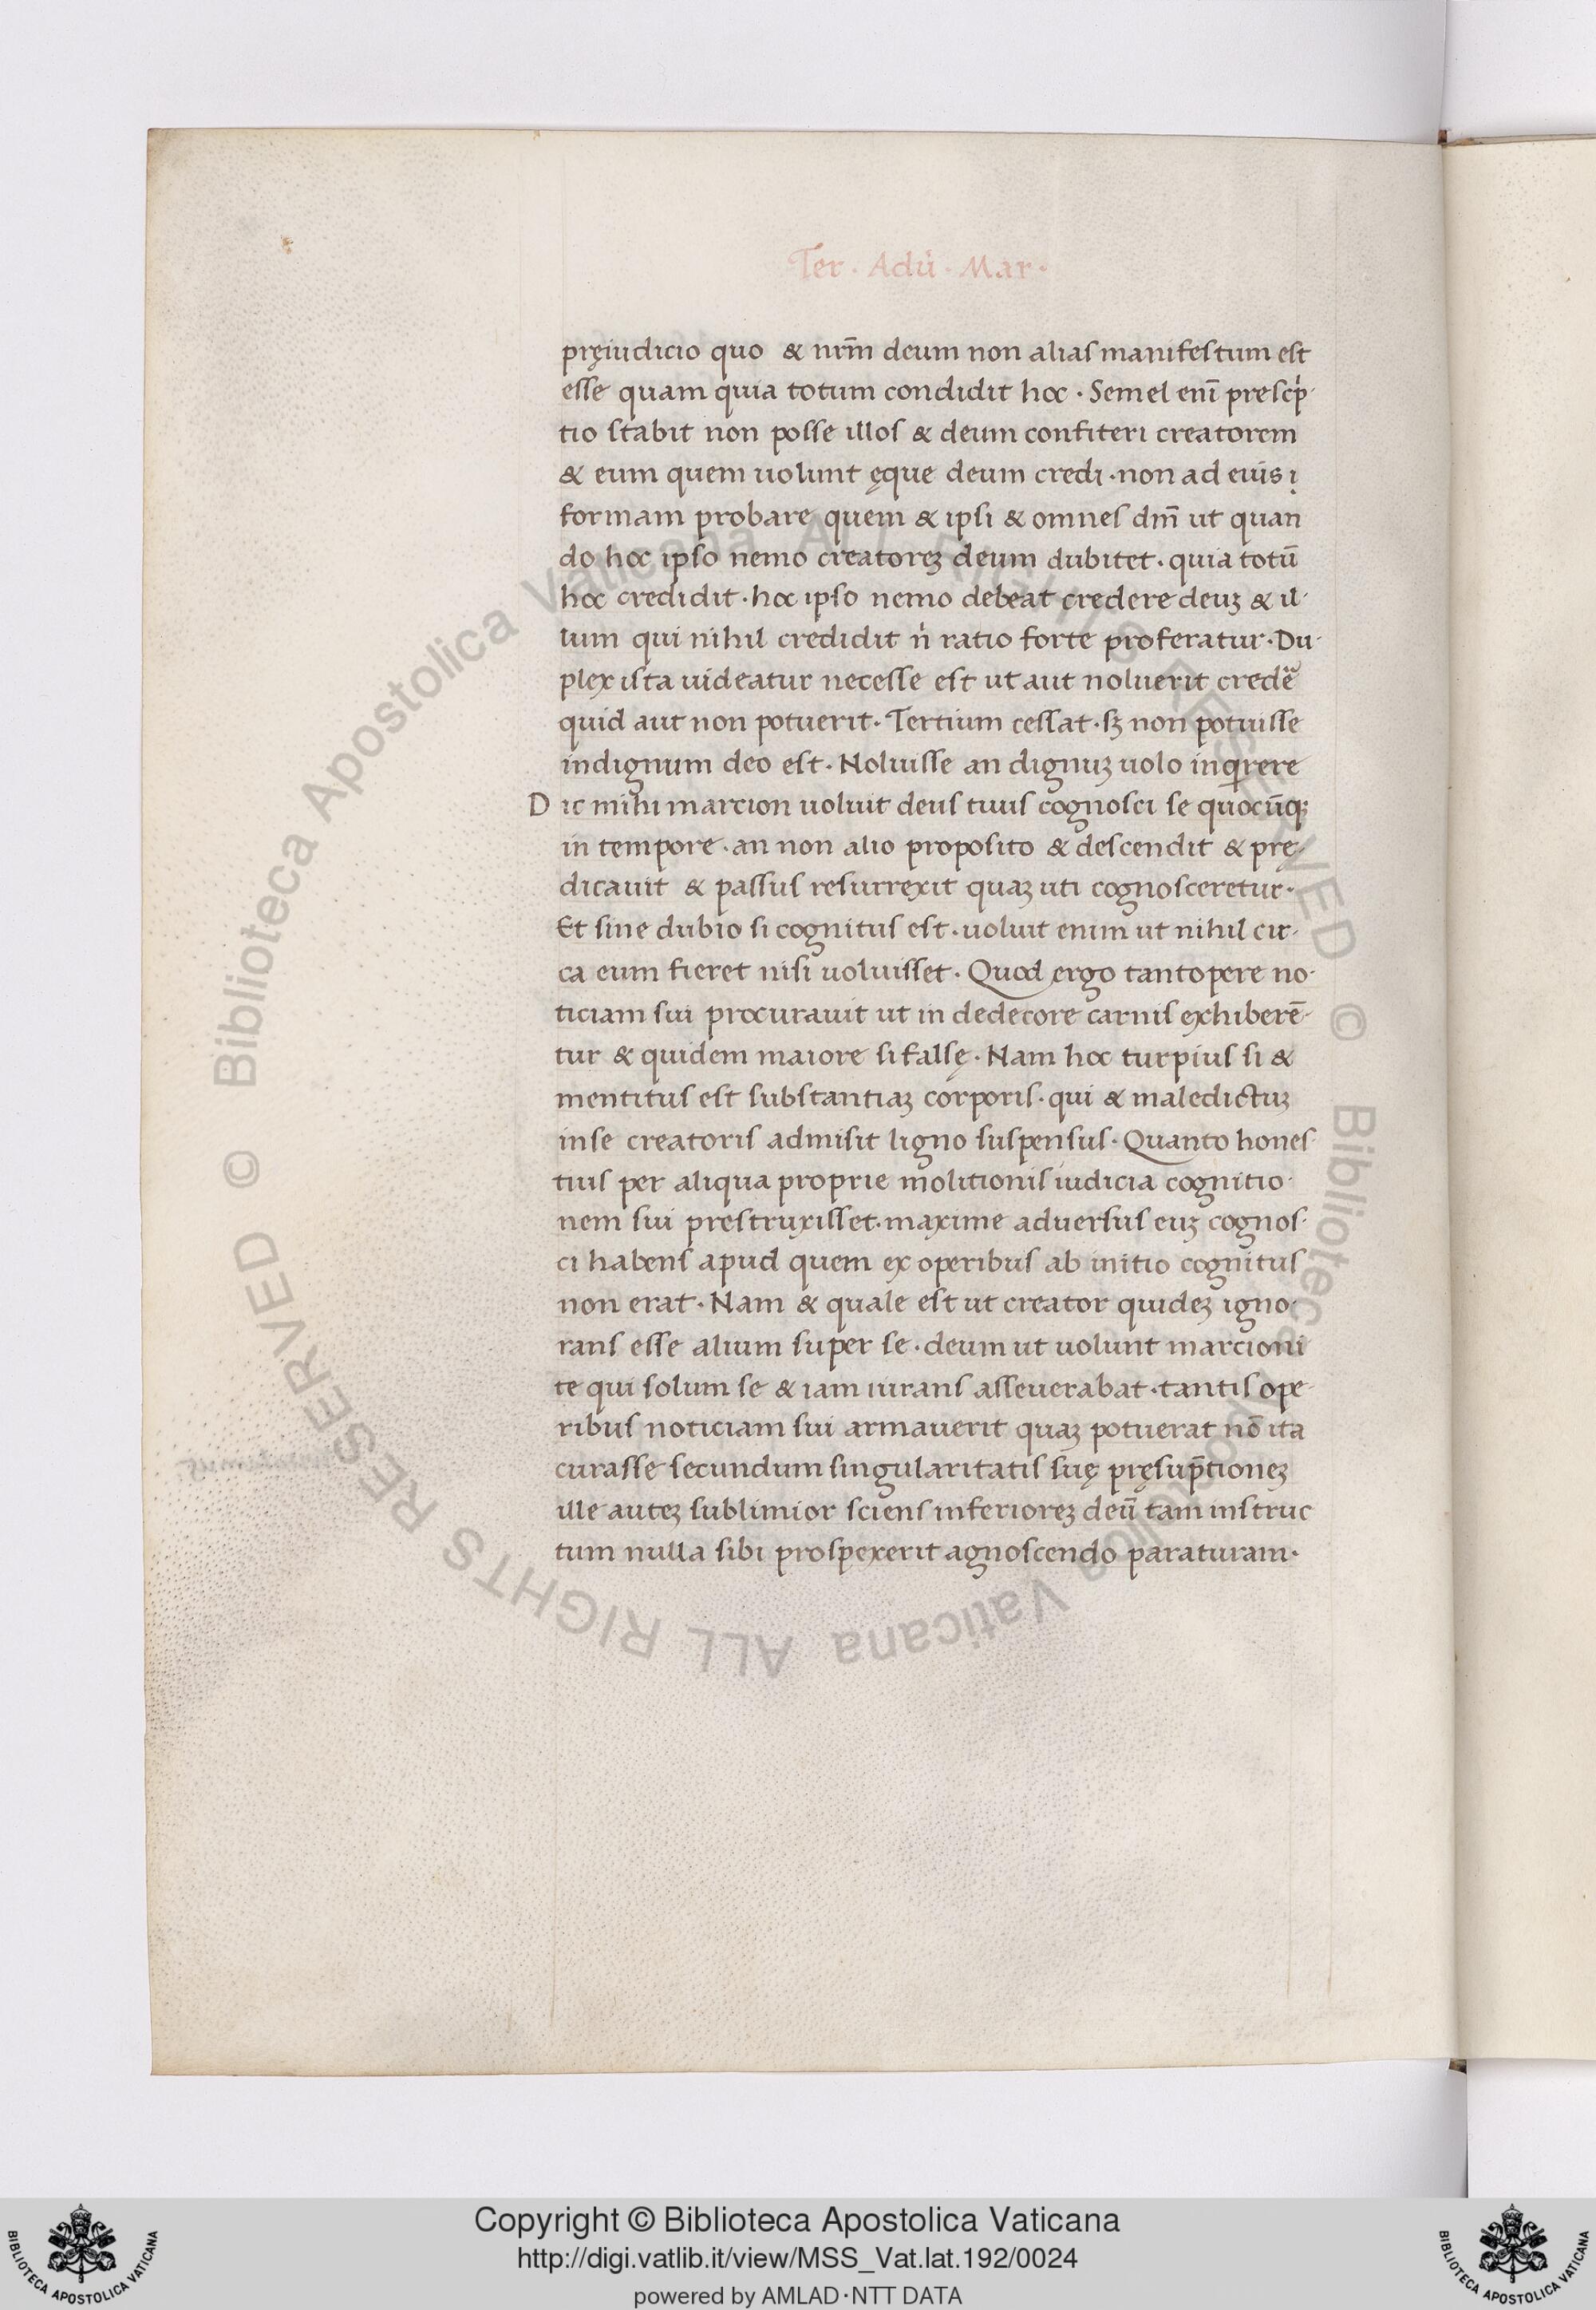 Ter · Adū · Mar ·
pręiudicio quo & nr̄m deum non alias manifestum est
esse quam quia totum condidit hoc · Semel eni̅ prescp̍-
tio stabit non posse illos & deum confiteri creatorem
& eum quem uolunt ęque deum credi · non ad eius i
formam probare quem & ipsi & omnes dm̄ ut quan
do hoc ipso nemo creatoreꝫ deum dubitet · quia totū
hoc credidit · hoc ipso nemo debeat credere deuꝫ & il-
lum qui nihil credidit n̍ ratio forte proferatur · Du-
plex ista uideatur necesse est ut aut noluerit credē
quid aut non potuerit · Tertium cessat · sꝫ non potuisse
indignum deo est · Noluisse an dignuꝫ uolo inqrere
D ic mihi marcion uoluit deus tuus cognosci se quocūqꝫ
in tempore · an non alio proposito & descendit & prę-
dicauit & passus resurrexit quaꝫ uti cognosceretur ·
Et sine dubio si cognitus est · uoluit enim ut nihil cir-
ca eum fieret nisi uoluisset · Quod ergo tantopere no-
ticiam sui procurauit ut in dedecore carnis exhiberē-
tur & quidem maiore si falsę · Nam hoc turpius si &
mentitus est substantiaꝫ corporis · qui & maledictuꝫ
inse creatoris admisit ligno suspensus · Quanto hones-
tius per aliqua proprie molitionis iudicia cognitio-
nem sui prestruxisset · maxime aduersus euꝫ cognos-
ci habens apud quem ex operibus ab initio cognitus
non erat · Nam & quale est ut creator quideꝫ igno-
rans esse alium super se · deum ut uolunt marcioni
te qui solum se & iam iurans asseuerabat · tantis ope-
ribus noticiam sui armauerit quaꝫ potuerat nō ita
curasse secundum singularitatis suę pręsup̄tioneꝫ
ille auteꝫ sublimior sciens inferioreꝫ deū tam instruc
tum nulla sibi prospexerit agnoscendo paraturam ·
© Biblioteca Apostolica Vaticana ALL RIGHTS RESERVED
© Biblioteca Apostolica Vaticana ALL RIGHTS RESERVED
Copyright © Biblioteca Apostolica Vaticana
http://digi.vatlib.it/view/MSS_Vat.lat.192/0024
powered by AMLAD·NTT DATA
BIBLIOTECA APOSTOLICA VATICANA
BIBLIOTECA APOSTOLICA VATICANA